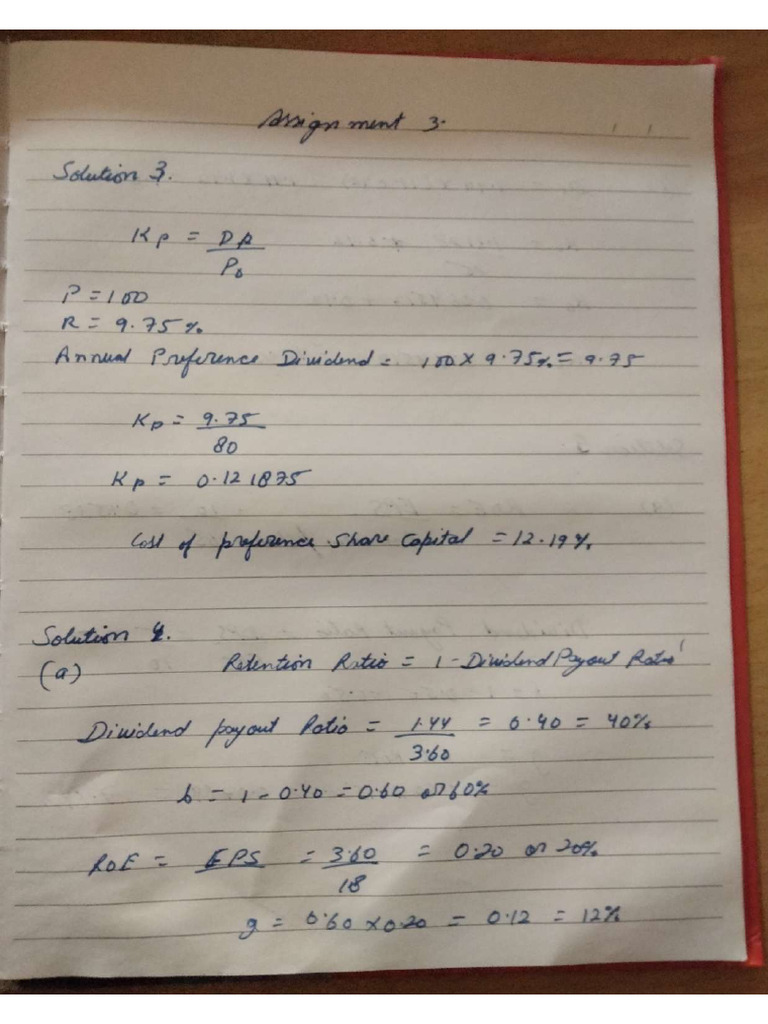 Assignment 3.
Solution 3.
Kp = DP / P0
P = 100
R = 9.75%
Annual Preference Dividend = 100 x 9.75% = 9.75
Kp = 9.75 / 80
Kp = 0.121875
Cost of preference share capital = 12.19%
Solution 4.
(a) Retention Ratio = 1 - Dividend Payout Ratio
Dividend payout Ratio = 1.44 / 3.60 = 0.40 = 40%
b = 1 - 0.40 = 0.60 or 60%
ROE = EPS = 3.60 / 18 = 0.20 or 20%
g = 0.60 x 0.20 = 0.12 = 12%